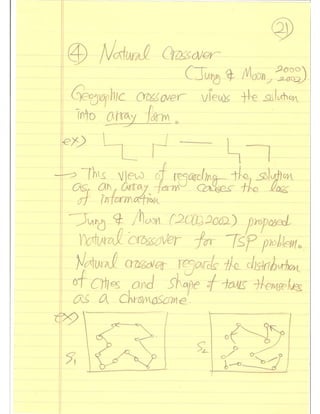 21
④ Natural Crossover
(Jung & Moon, 2000
2002)
Geographic crossover views the solution
into array form.
ex)
→ This view of regarding the solution
as an array form causes the loss
of information
Jung & Moon (2000, 2002) proposed
natural crossover for TSP problem.
Natural crossover regards the distribution
of cities and shape of tours themselves
as a chromosome
ex)
S1
S2